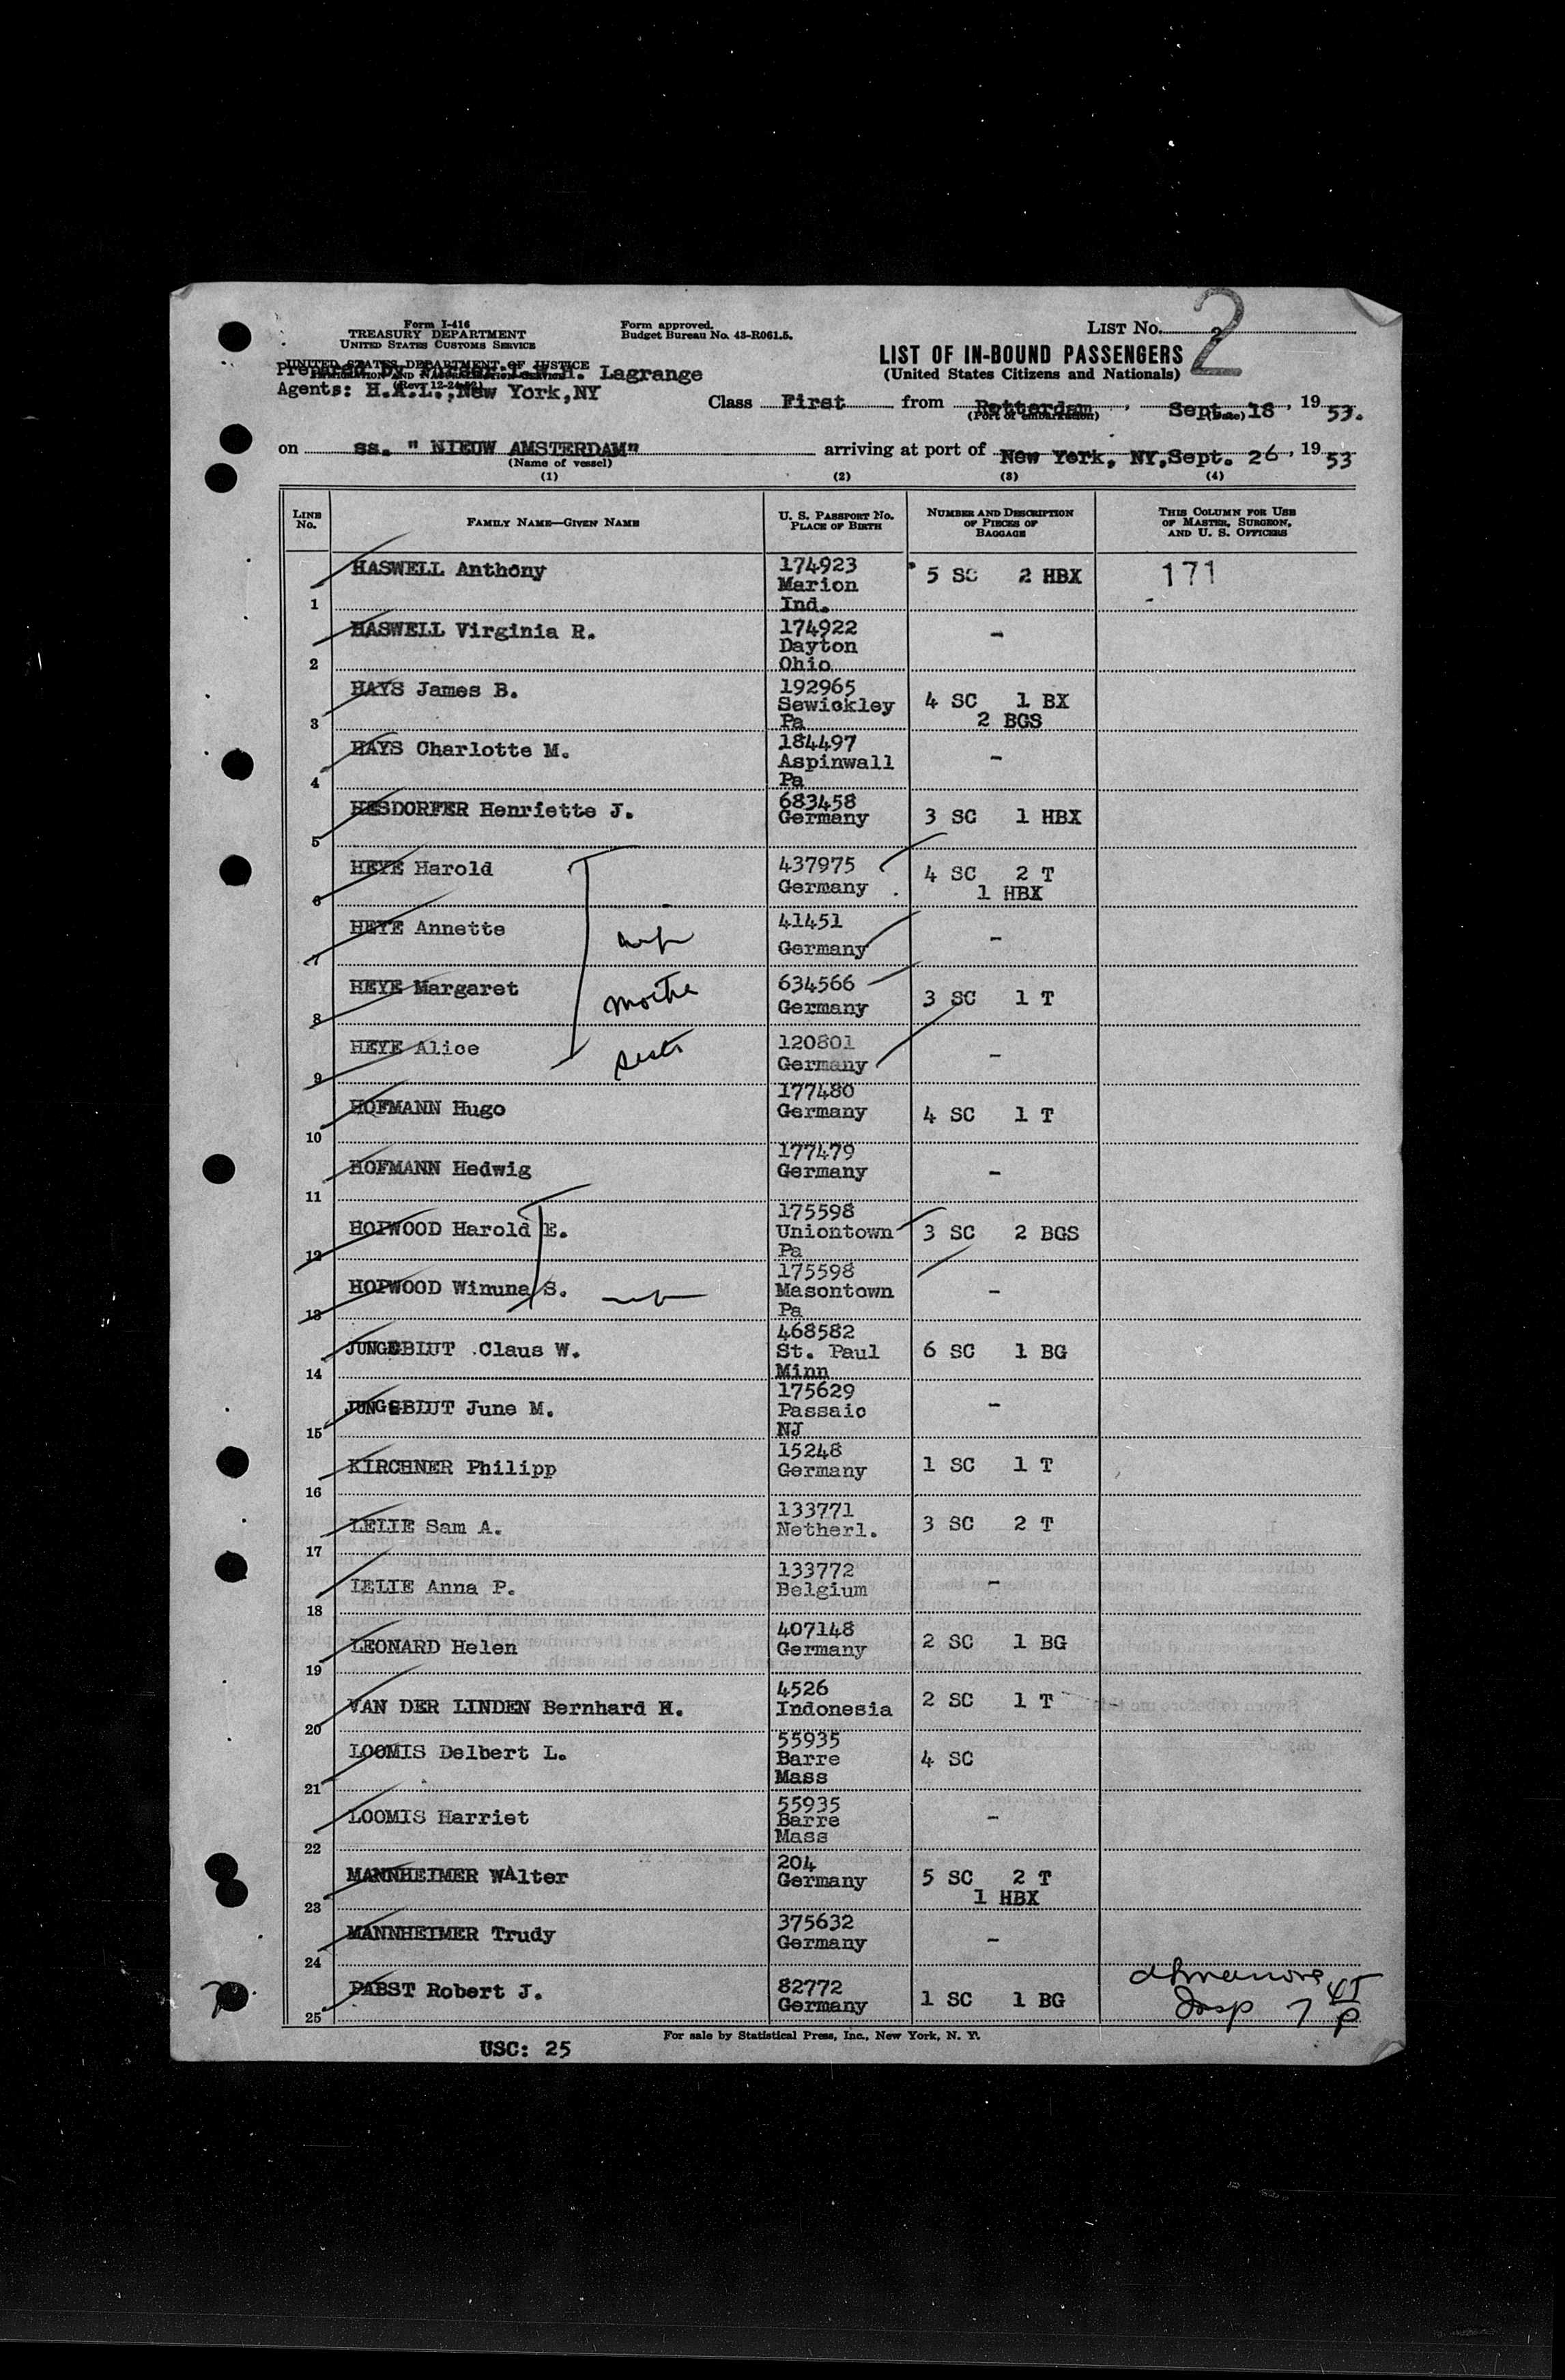 Form I-416
TREASURY DEPARTMENT
UNITED STATES CUSTOMS SERVICE
UNITED STATES DEPARTMENT OF JUSTICE
IMMIGRATION AND NATURALIZATION SERVICE
(Rev. 12-24-52)
Prepared by H. Lagrange
Agents: H.A.L., New York, NY
Form approved.
Budget Bureau No. 43-R061.5.
LIST NO. 2
LIST OF IN-BOUND PASSENGERS
(United States Citizens and Nationals)
Class First from Rotterdam, Sept. 18, 1953.
(Port of embarkation) (Date)
on ss. " NIEUW AMSTERDAM" arriving at port of New York, NY, Sept. 26, 1953
(Name of vessel)
(1) (2) (3) (4)
LINE NO. FAMILY NAME—GIVEN NAME U. S. PASSPORT NO. PLACE OF BIRTH NUMBER AND DESCRIPTION OF PIECES OF BAGGAGE THIS COLUMN FOR USE OF MASTER, SURGEON, AND U. S. OFFICERS
1 HASWELL Anthony 174923 Marion Ind. 5 SC 2 HBX 171
2 HASWELL Virginia R. 174922 Dayton Ohio -
3 HAYS James B. 192965 Sewickley Pa 4 SC 1 BX 2 BGS
4 HAYS Charlotte M. 184497 Aspinwall Pa -
5 HESDORFER Henriette J. 683458 Germany 3 SC 1 HBX
6 HEYE Harold 437975 Germany 4 SC 2 T 1 HBX
7 HEYE Annette 41451 Germany -
8 HEYE Margaret 634566 Germany 3 SC 1 T
9 HEYE Alice 120801 Germany -
10 HOFMANN Hugo 177480 Germany 4 SC 1 T
11 HOFMANN Hedwig 177479 Germany -
12 HOPWOOD Harold E. 175598 Uniontown Pa 3 SC 2 BGS
13 HOPWOOD Winuna S. 175598 Masontown Pa -
14 JUNGEBLUT Claus W. 468582 St. Paul Minn 6 SC 1 BG
15 JUNGEBLUT June M. 175629 Passaic NJ -
16 KIRCHNER Philipp 15248 Germany 1 SC 1 T
17 LELIE Sam A. 133771 Netherl. 3 SC 2 T
18 LELIE Anna P. 133772 Belgium -
19 LEONARD Helen 407148 Germany 2 SC 1 BG
20 VAN DER LINDEN Bernhard H. 4526 Indonesia 2 SC 1 T
21 LOOMIS Delbert L. 55935 Barre Mass 4 SC
22 LOOMIS Harriet 55935 Barre Mass -
23 MANNHEIMER WAlter 204 Germany 5 SC 2 T 1 HBX
24 MANNHEIMER Trudy 375632 Germany -
25 PABST Robert J. 82772 Germany 1 SC 1 BG
For sale by Statistical Press, Inc., New York, N. Y.
USC: 25